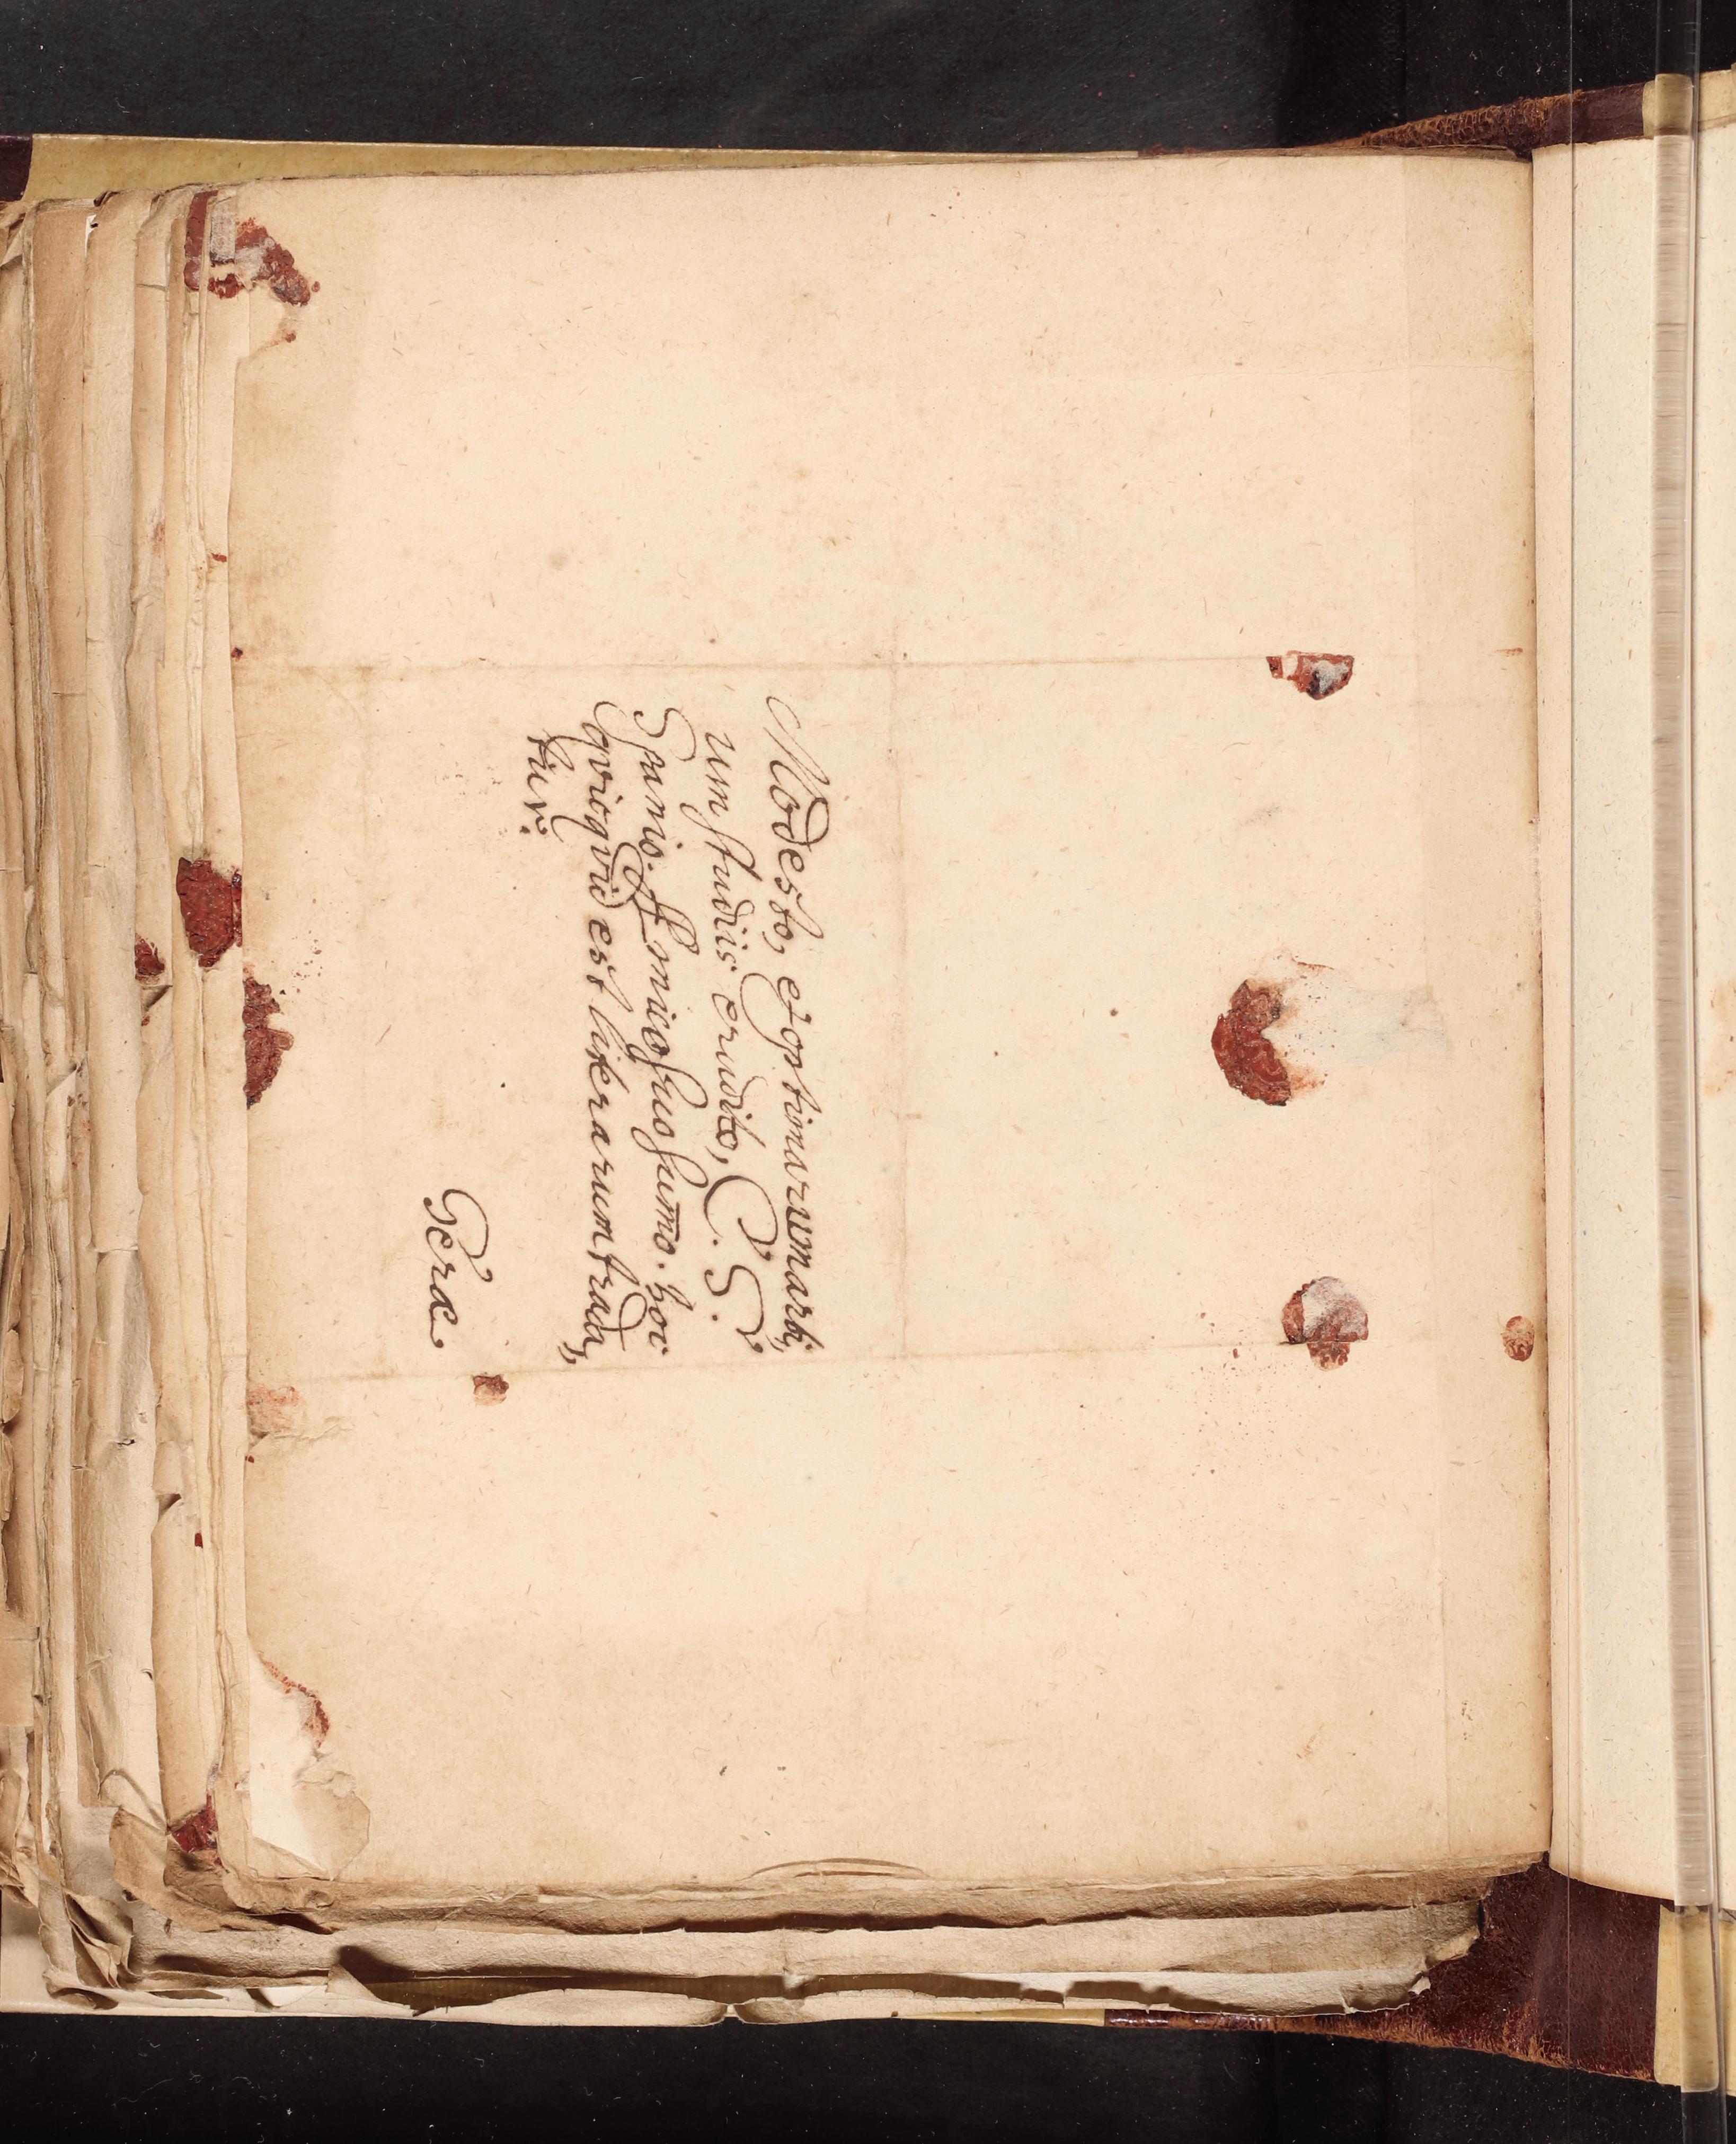 Modesto, et optimarum arti,
um studiis erudito, C. S.
Spanio. Amico suo sum̄o. hoc
qvicqvid est literarum trada,
tur.
Geræ.